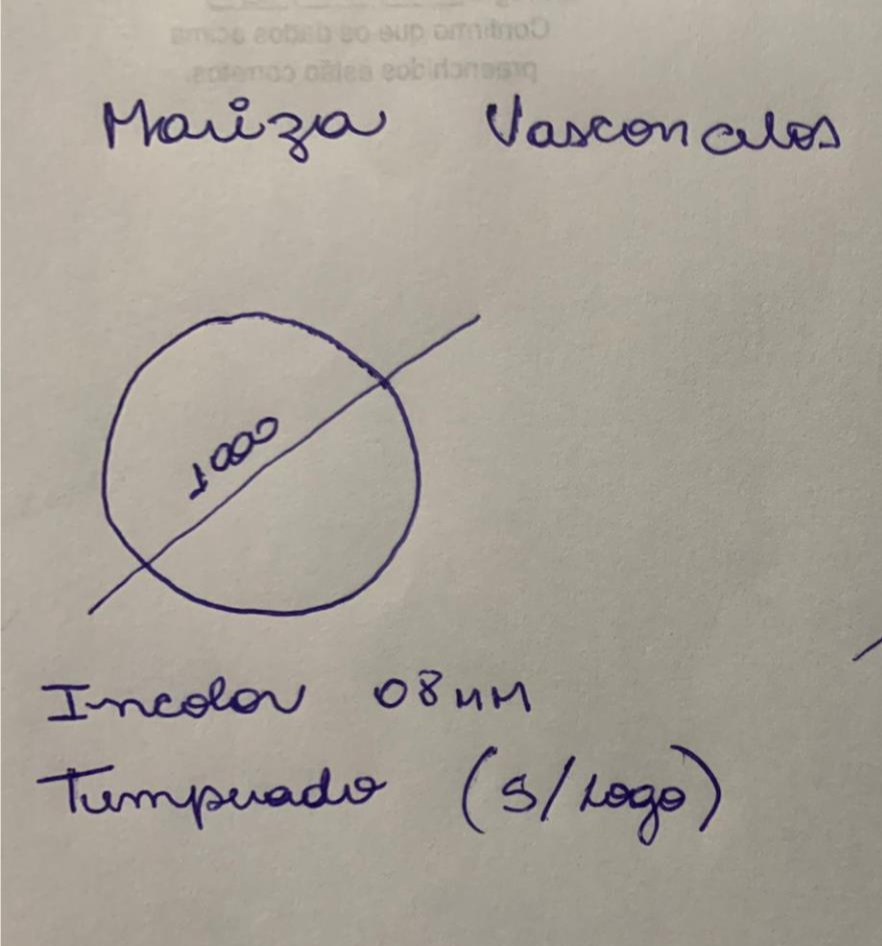 Confirmo que os dados acima
preenchidos estão corretos.
Mariza Vasconcelos
1000
Incolor 08MM
Temperado (S/Logo)